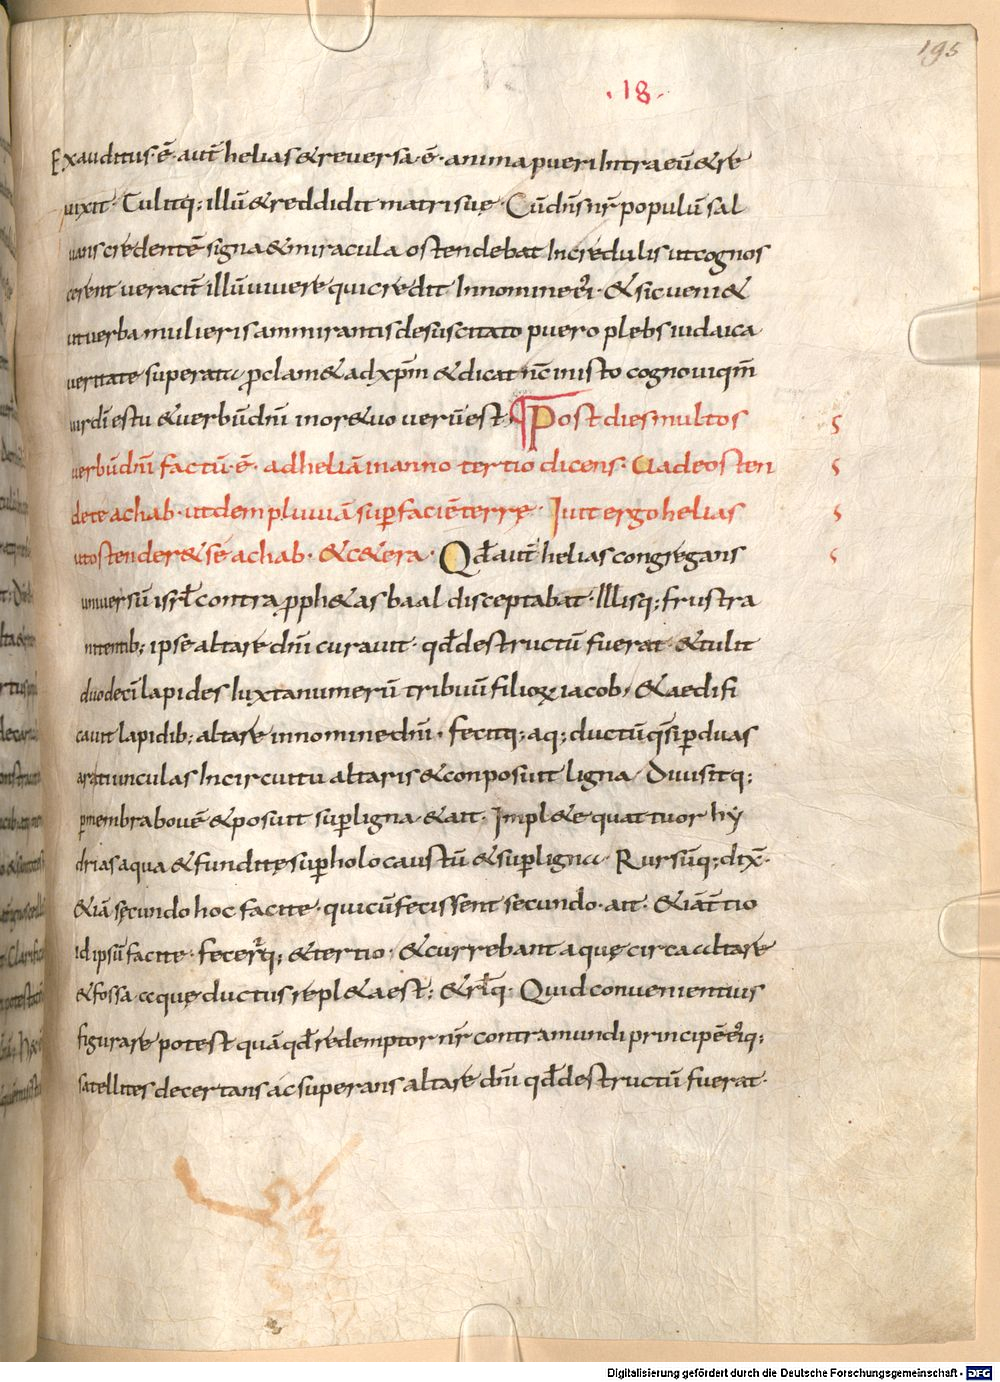 195
.18.
Exauditus·ē· aut̄ helias & reversa·ē· anima pueri intra eū & re
uixit· Tulitq; illū & reddidit matri suę· Cū dn̄s nr̄ populū sal
uans credentē signa & miracula ostendebat incredulis ut cognos
cerent veracit̄ illū vivere qui credit in nomine ei'· & sic veni&
ut verba mulieris ammirantis de suscitato puero plebs iudaica
veritate superata p̄clam& ad xp̄m & dicat nc̄ in isto cognovi qm̄
vir dī es tu & verbū dn̄i in ore tuo verū est· Post dies multos
verbū dn̄i factū·ē· ad heliā in anno tertio dicens· Uade osten
de te achab· ut dem pluuiā sup̄ faciē terrę· Iuit ergo helias
ut ostender& se achab· & c&era· Qđ aut̄ helias congregans
universū isrl̄ contra p̄ph&as baal disceptabat· Illisq; frustra
nitentib; ipse altare dn̄i curavit· qđ destructū fuerat· & tulit
duodecī lapides iuxta numerū tribuū filioꝝ iacob· & aedifi
cavit lapidib; altare in nomine dn̄i· fecitq; aq; ductū q̄si p̄ duas
aratiunculas in circuitu altaris & conposuit ligna· Divisitq;
p̄ membra bovē & posuit sup̄ ligna· & ait· Impl&e quattuor hy
drias aqua & fundite sup̄ holocaustū & sup̄ ligna· Rursūq; dix̄·
& iā secundo hoc facite· qui cū fecissent secundo· ait· & iā t̄tio
id ipsū facite· fecer̄q; & tertio· & currebant aquę circa altare
& fossa aquę ductus repl&a est; & rl̄q· Quid convenientius
figurare potest quā qđ redemptor nr̄ contra mundi principē ei'q;
satellites decertans ac superans altare dn̄i qđ destructū fuerat·
s
s
s
s
Digitalisierung gefördert durch die Deutsche Forschungsgemeinschaft - DFG